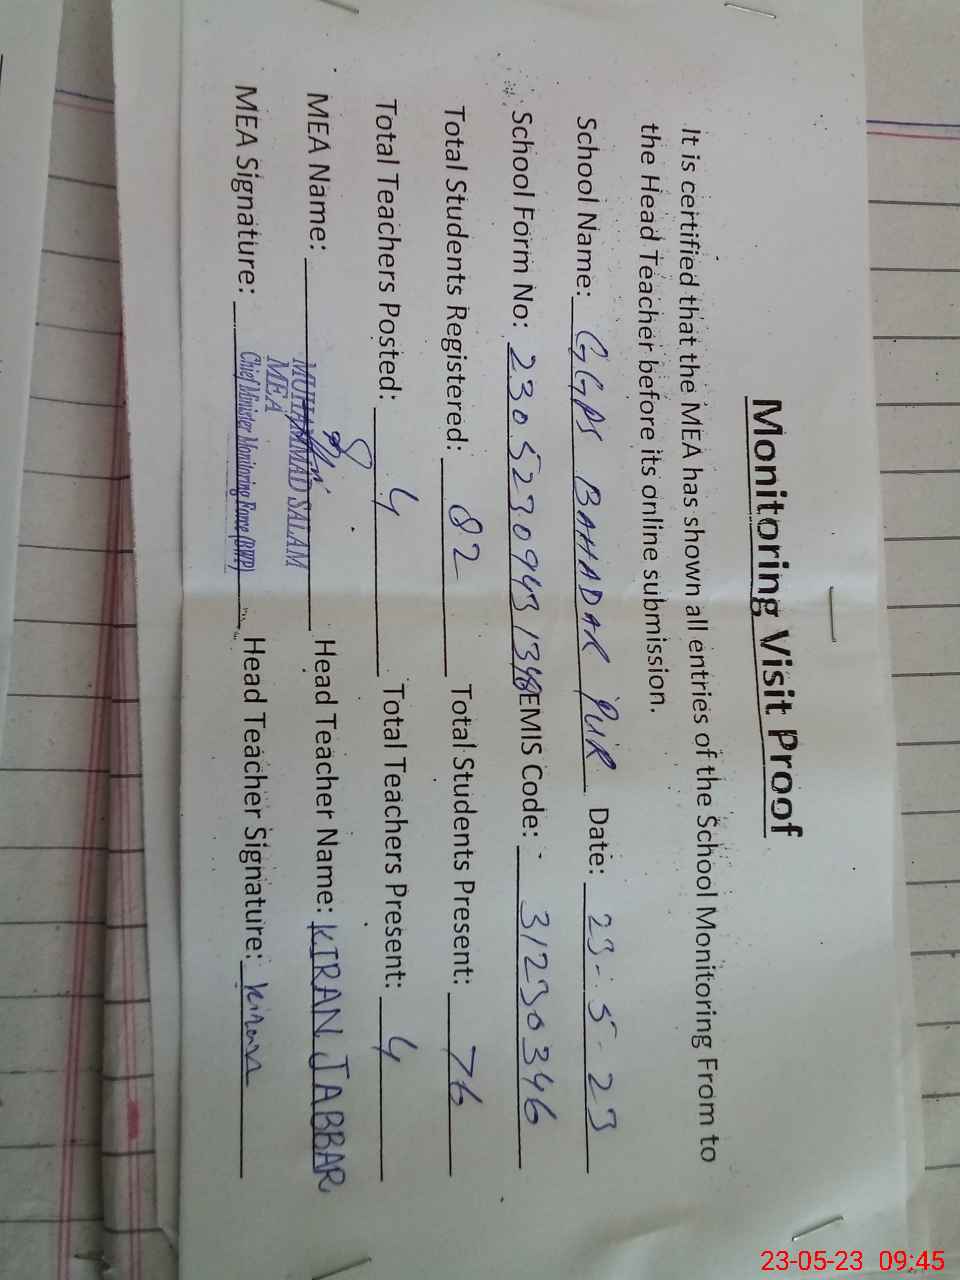 Monitoring Visit Proof
It is certified that the MEA has shown all entries of the School Monitoring From to
the Head Teacher before its online submission.
School Name: GGPS BAHADAR PUR Date: 23-5-23
School Form No: 23052309431348 EMIS Code: 31230346
Total Students Registered: 82 Total Students Present: 76
Total Teachers Posted: 4 Total Teachers Present: 4
MEA Name: MUHAMMAD SALAM Head Teacher Name: KIRAN JABBAR
MEA
MEA Signature: Chief Minister Monitoring Force (BWP) Head Teacher Signature: Kiran
23-05-23 09:45